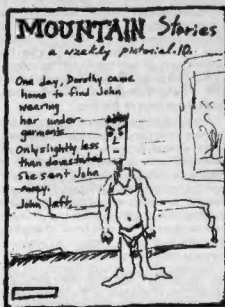 MOUNTAIN Stories
a weekly pictorial. 10.
One day, Dorothy came
home to find John
wearing
her under-
garments.
Only slightly less
than devastated
she sent John
away.
John left.